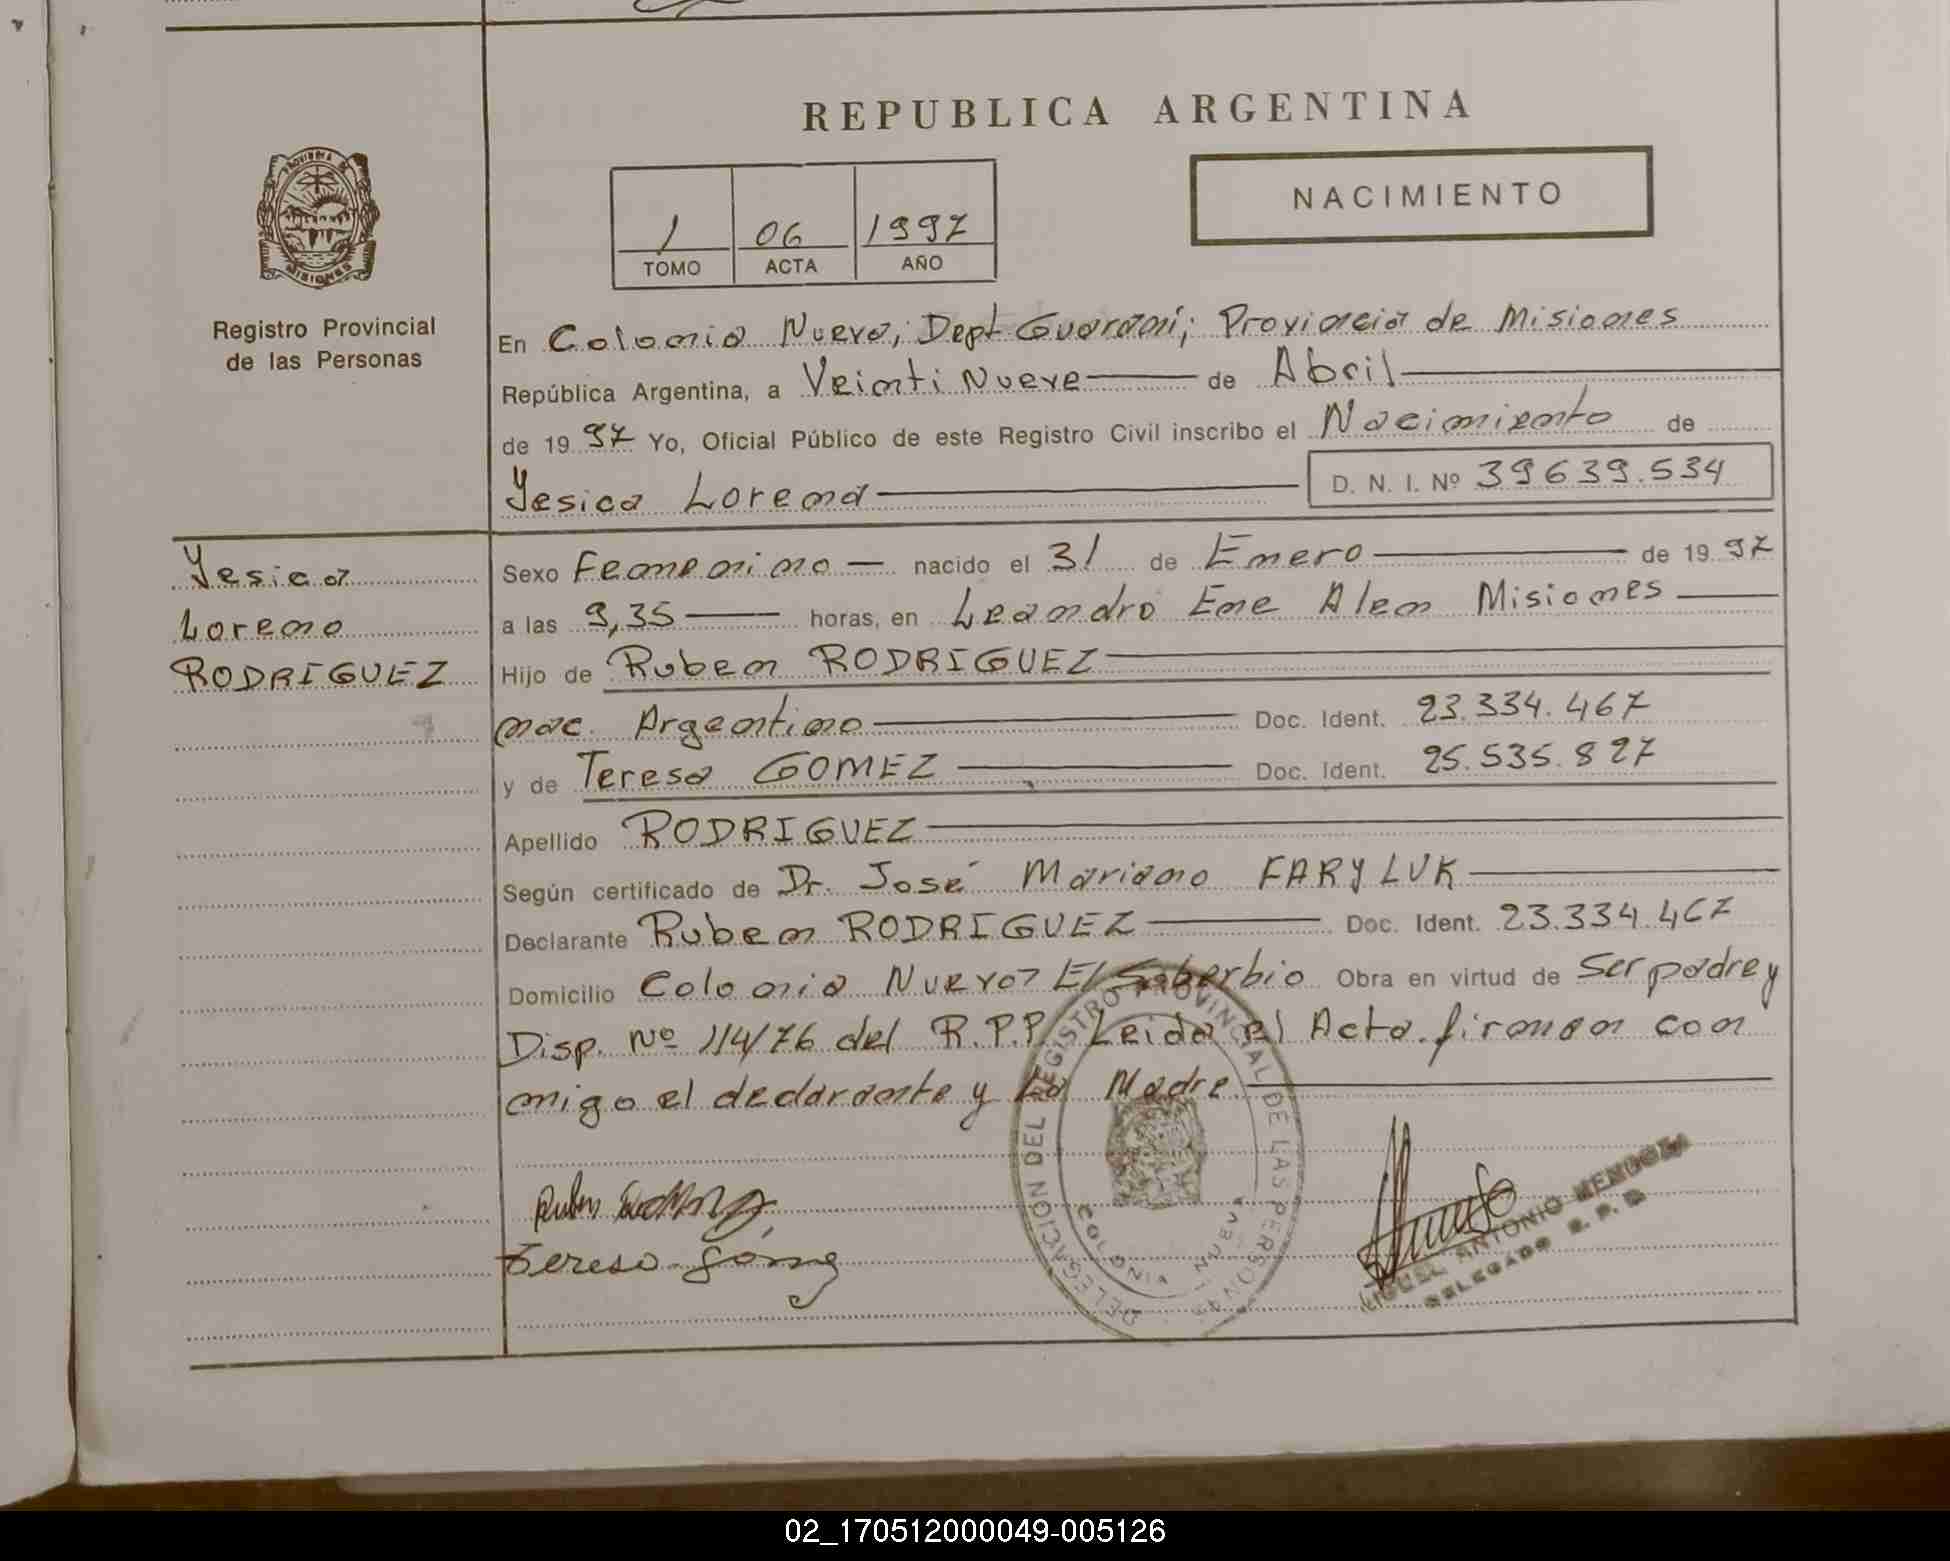 REPUBLICA ARGENTINA
NACIMIENTO
1 06 1997
TOMO ACTA AÑO
PROVINCIA DE
MISIONES
Registro Provincial
de las Personas
En Colonia Nueva, Dept Guaraní; Provincia de Misiones
República Argentina, a Veinti Nueve de Abril
de 1997 Yo, Oficial Público de este Registro Civil inscribo el Nacimiento de
Yesica Lorena D. N. I. Nº 39639.534
Yesica
Lorena
RODRIGUEZ
Sexo Femenino nacido el 31 de Enero de 1997
a las 9,35 horas, en Leandro Ene Alem Misiones
Hijo de Ruben RODRIGUEZ
nac. Argentino Doc. Ident. 23.334.467
y de Teresa GOMEZ Doc. Ident. 25.535.827
Apellido RODRIGUEZ
Según certificado de Dr. José Mariano FARYLUK
Declarante Ruben RODRIGUEZ Doc. Ident. 23.334.467
Domicilio Colonia Nueva El Soberbio Obra en virtud de Ser padre y
Disp. Nº 114/76 del R.P.P. Leida el Acta firman con
migo el declarante y La Madre
DELEGACION DEL REGISTRO PROVINCIAL DE LAS PERSONAS
COLONIA NUEVA
Ruben
Teresa Gómez
MIGUEL ANTONIO MENDOZA
DELEGADO R. P. P.
02_170512000049-005126